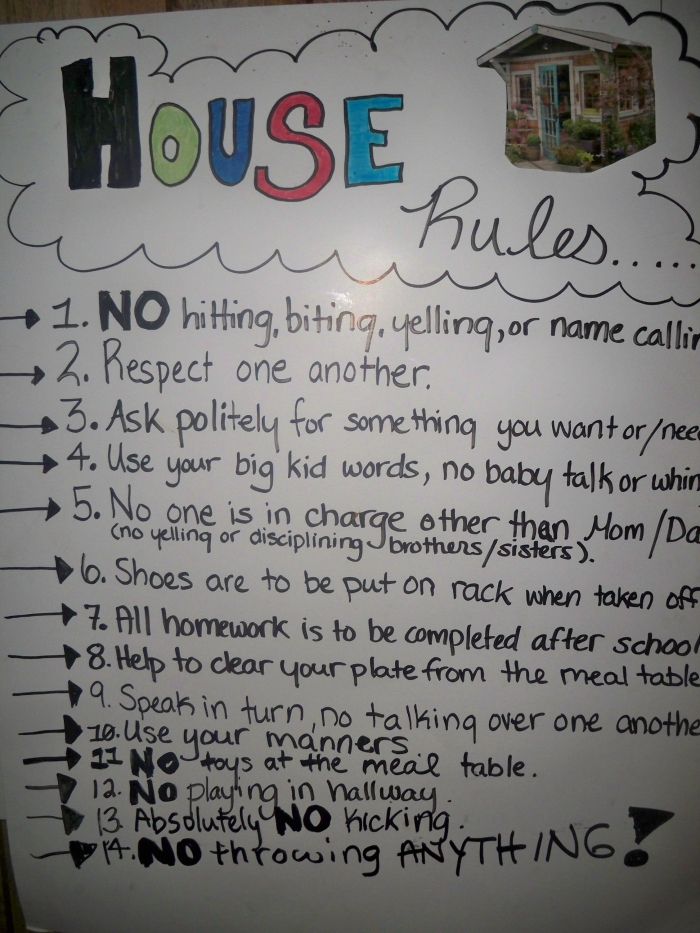 HOUSE
Rules.....
1. NO hitting, biting, yelling, or name callin
2. Respect one another.
3. Ask politely for something you want or/need
4. Use your big kid words, no baby talk or whin
5. No one is in charge other than Mom/Da
(no yelling or disciplining brothers/sisters).
6. Shoes are to be put on rack when taken off
7. All homework is to be completed after school
8. Help to clear your plate from the meal table
9. Speak in turn, no talking over one anothe
10. Use your manners
11 NO toys at the meal table.
12. NO playing in hallway.
13. Absolutely NO kicking.
14. NO throwing ANYTHING!